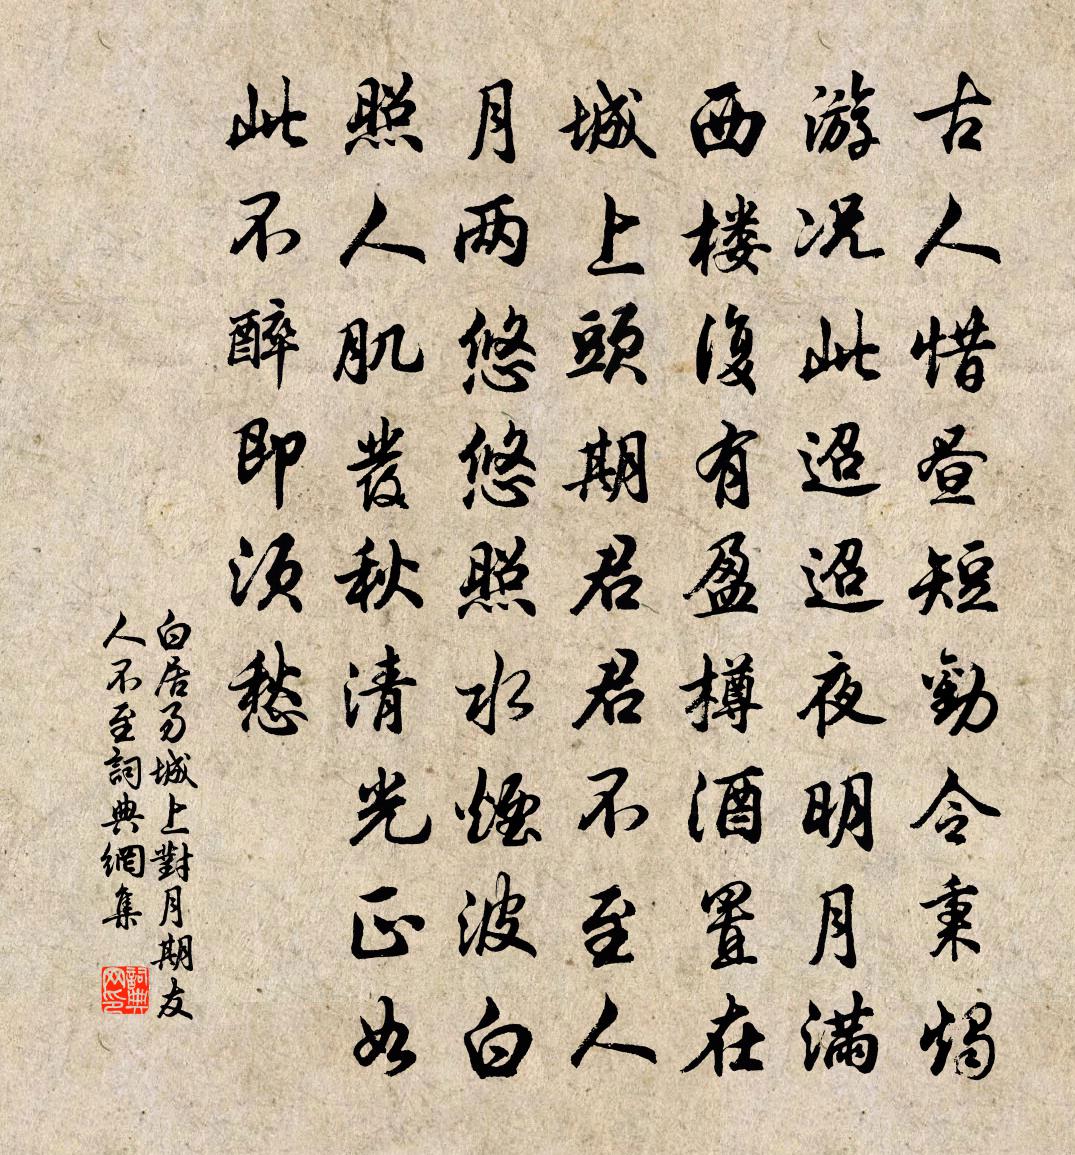 古人惜昼短勸令秉燭
游况此迢迢夜明月满
西楼復有盈樽酒置在
城上頭期君君不至人
月两悠悠照水煙波白
照人肌發秋清光正如
此不醉即須愁
白居易城上對月期友
人不至詞典網集
詞典网印